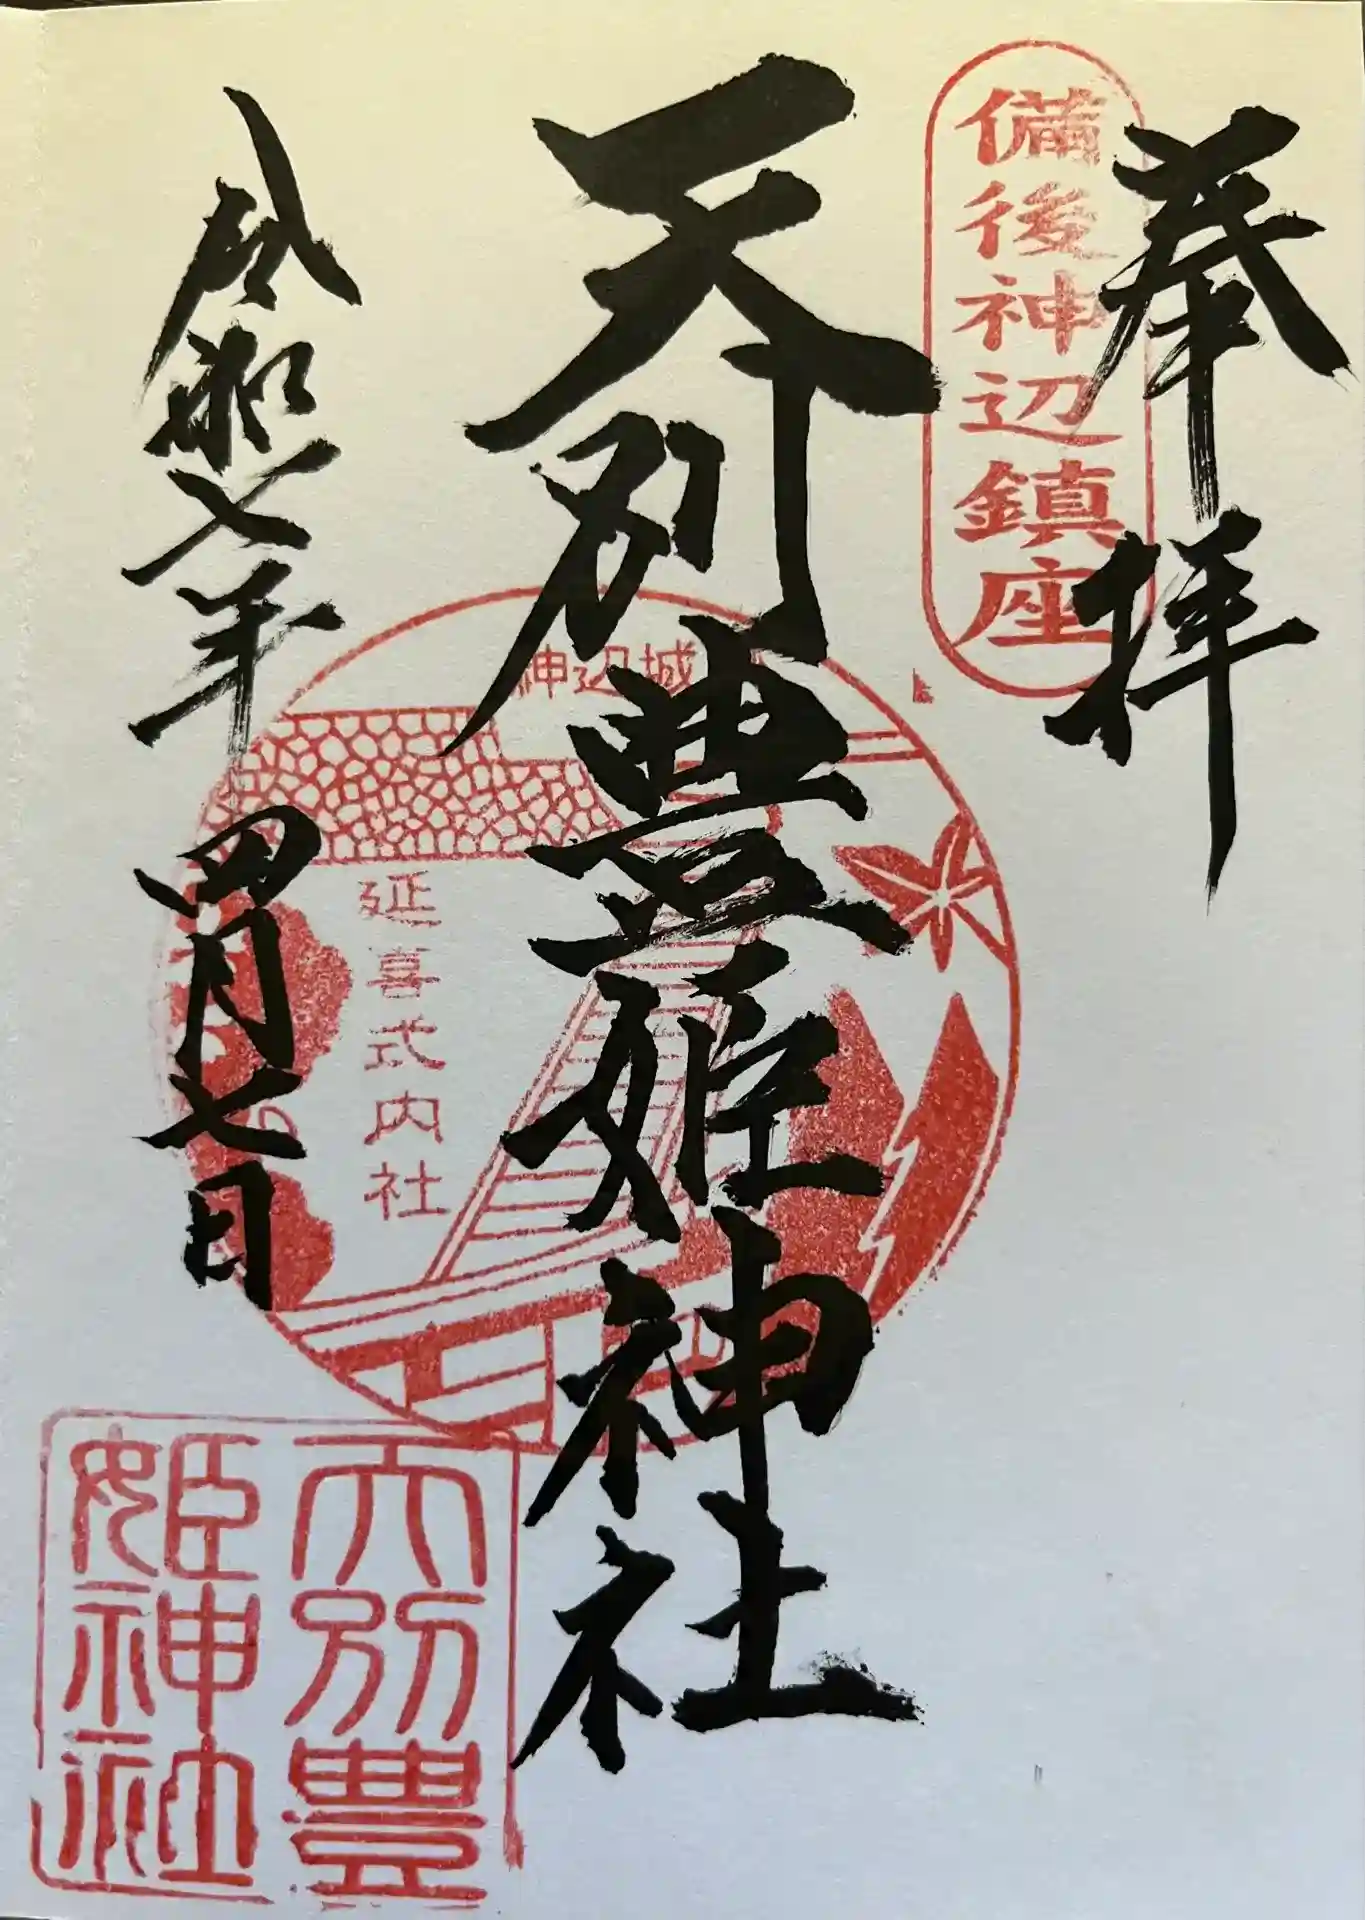 奉拝
備後神辺鎮座
天別豊姫神社
神辺城
延喜式内社
令和七年四月七日
天別豊
姫神社